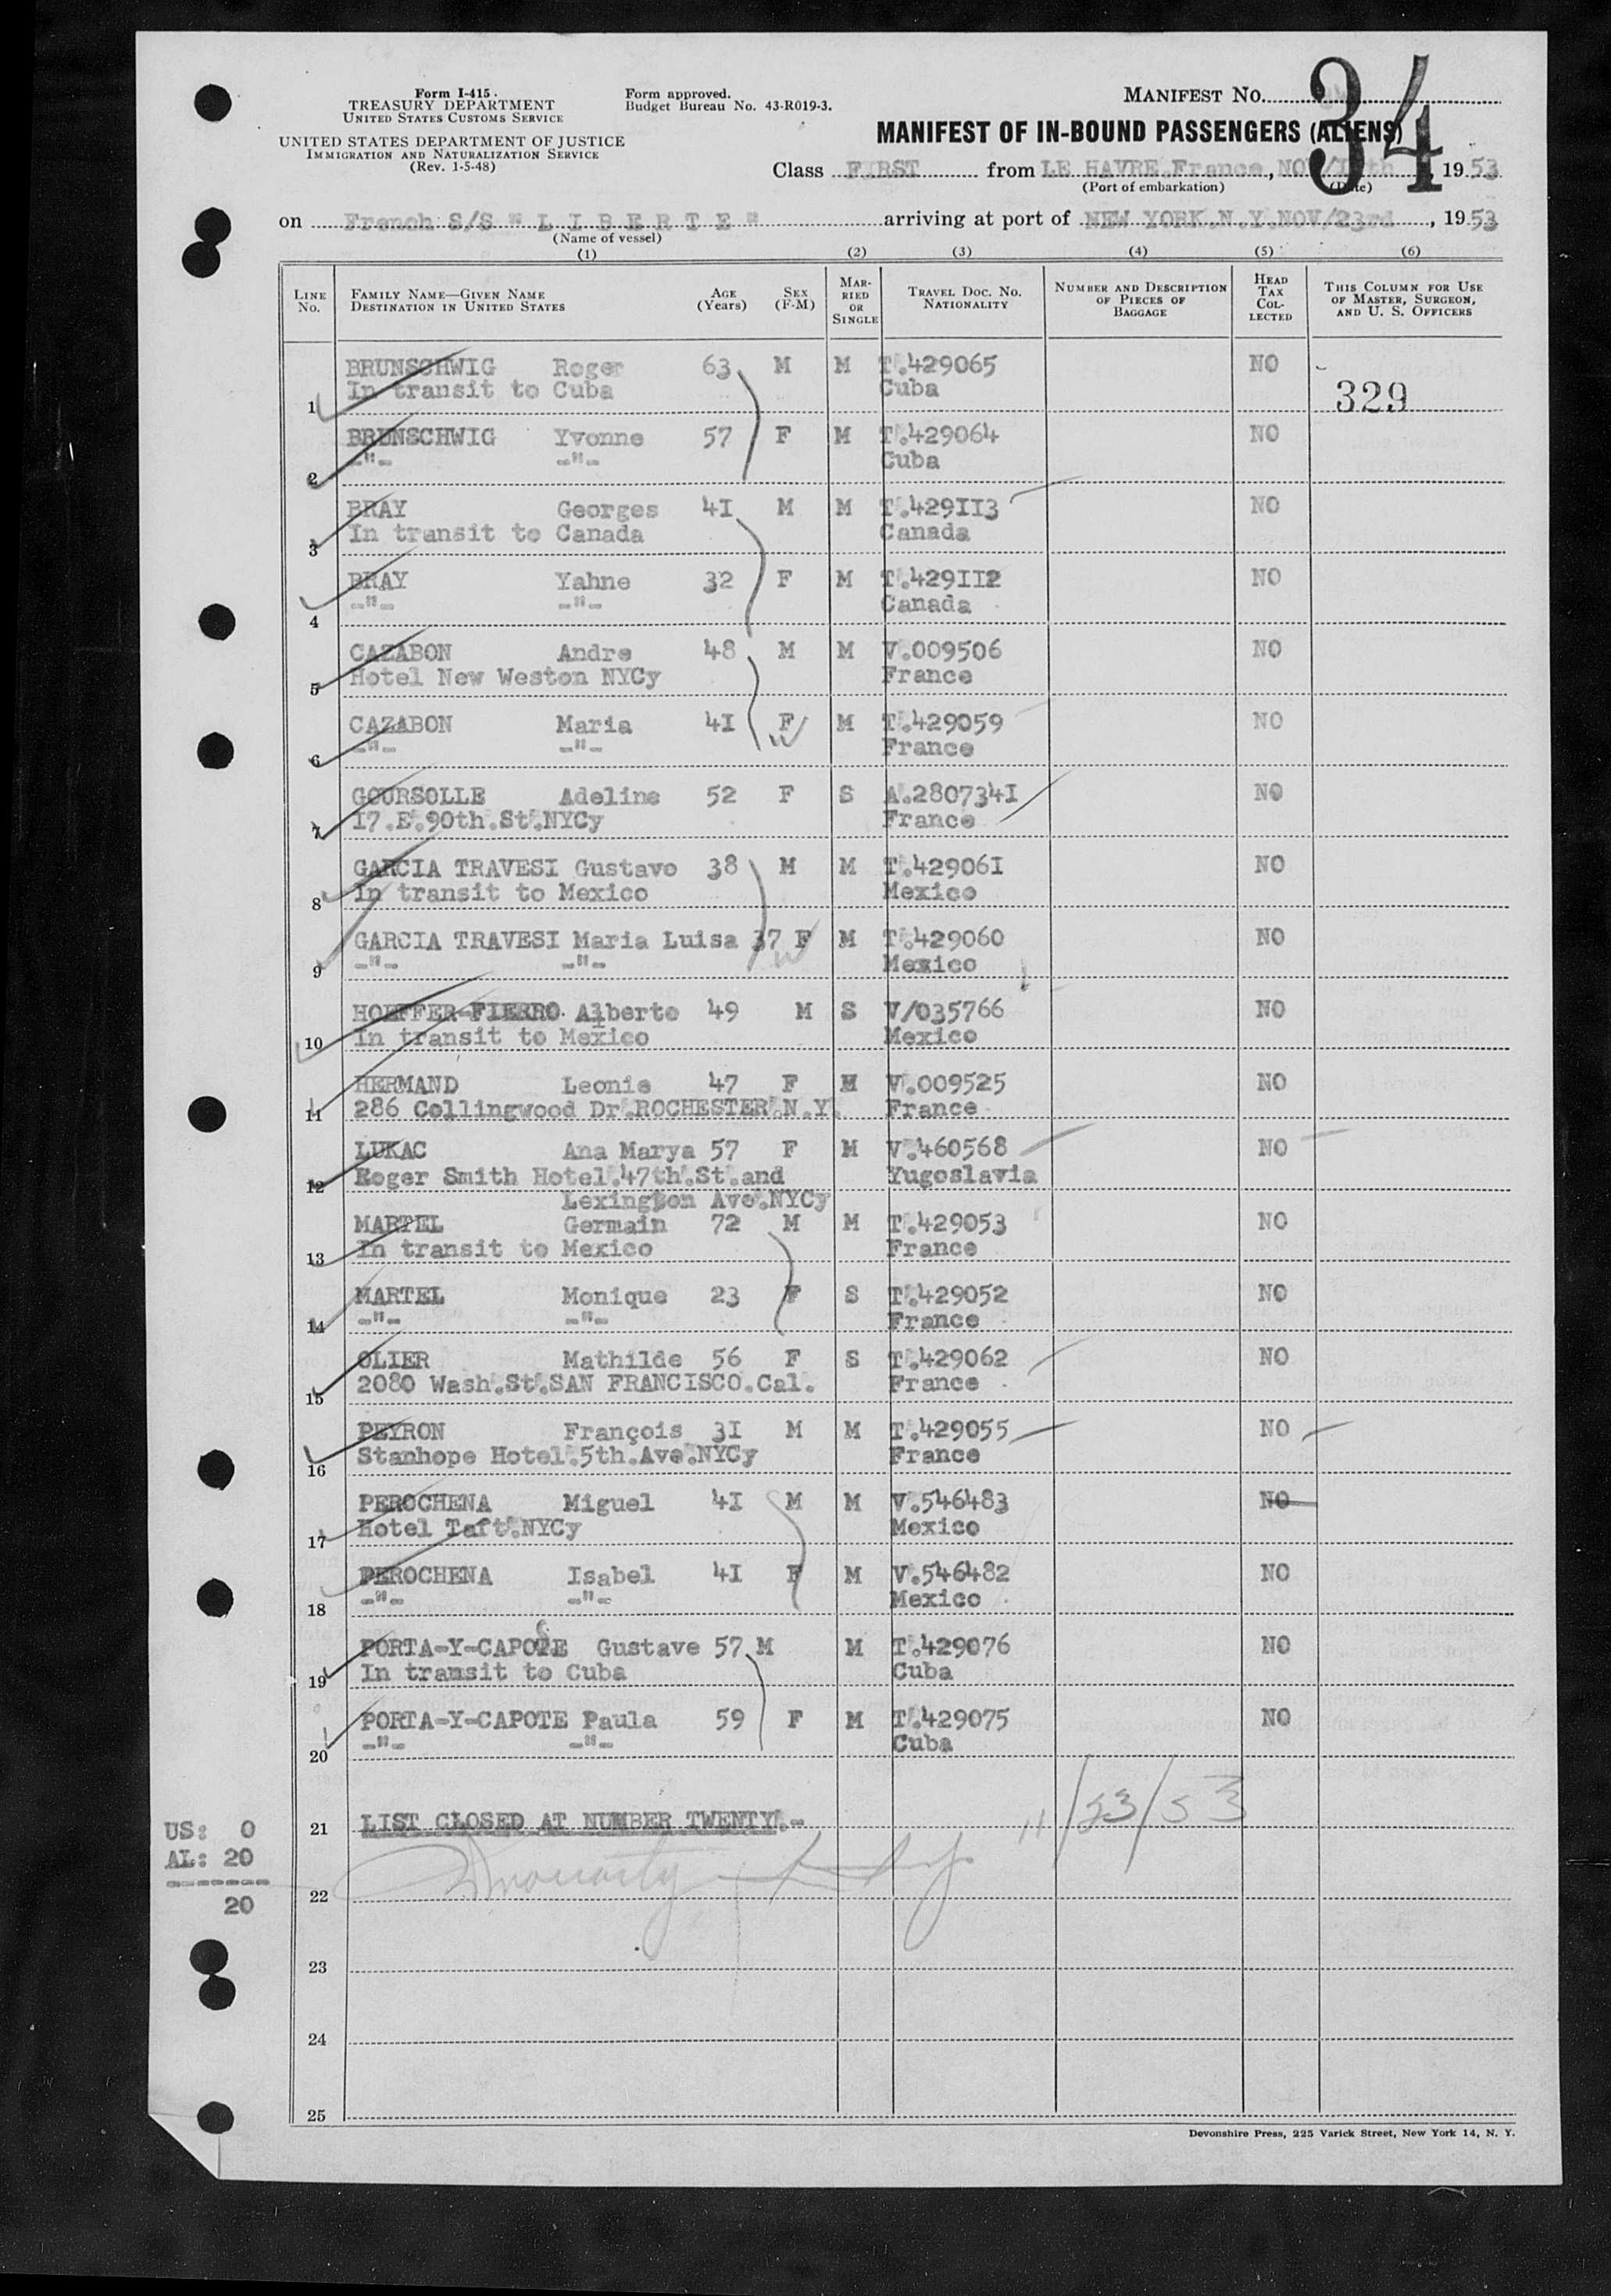 Form I-415.
TREASURY DEPARTMENT
UNITED STATES CUSTOMS SERVICE
UNITED STATES DEPARTMENT OF JUSTICE
IMMIGRATION AND NATURALIZATION SERVICE
(Rev. 1-5-48)
Form approved.
Budget Bureau No. 43-R019-3.
MANIFEST NO.
34
MANIFEST OF IN-BOUND PASSENGERS (ALIENS)
Class FIRST from LE HAVRE.France, NOV/ th, 1953
(Port of embarkation) (Date)
on French S/S "L I B E R T E" arriving at port of NEW YORK.N.Y.NOV/23rd, 1953
(Name of vessel)
(1) (2) (3) (4) (5) (6)
LINE NO. FAMILY NAME—GIVEN NAME DESTINATION IN UNITED STATES AGE (Years) SEX (F-M) MARRIED OR SINGLE TRAVEL DOC. NO. NATIONALITY NUMBER AND DESCRIPTION OF PIECES OF BAGGAGE HEAD TAX COLLECTED THIS COLUMN FOR USE OF MASTER, SURGEON, AND U. S. OFFICERS
BRUNSCHWIG Roger 63 M M T.429065 NO
1 In transit to Cuba Cuba 329
BRUNSCHWIG Yvonne 57 F M T.429064 NO
2 -"- -"- Cuba
BRAY Georges 4I M M T.429II3 NO
3 In transit to Canada Canada
BRAY Yahne 32 F M T.429II2 NO
4 -"- -"- Canada
CAZABON Andre 48 M M V.009506 NO
5 Hotel New Weston NYCy France
CAZABON Maria 4I F M T.429059 NO
6 -"- -"- France
GOURSOLLE Adeline 52 F S A.280734I NO
7 I7.E.90th.St.NYCy France
GARCIA TRAVESI Gustavo 38 M M T.42906I NO
8 In transit to Mexico Mexico
GARCIA TRAVESI Maria Luisa 37 F M T.429060 NO
9 -"- -"- Mexico
HOEFFER-FIERRO Alberto 49 M S V/035766 NO
10 In transit to Mexico Mexico
HERMAND Leonie 47 F M V.009525 NO
11 286 Collingwood Dr.ROCHESTER.N.Y. France
LUKAC Ana Marya 57 F M V.460568 NO
12 Roger Smith Hotel.47th.St.and Yugoslavia
Lexington Ave.NYCy
MARTEL Germain 72 M M T.429053 NO
13 In transit to Mexico France
MARTEL Monique 23 F S T.429052 NO
14 -"- -"- France
OLIER Mathilde 56 F S T.429062 NO
15 2080 Wash.St.SAN FRANCISCO.Cal. France
PEYRON François 3I M M T.429055 NO
16 Stanhope Hotel.5th.Ave.NYCy France
PEROCHENA Miguel 4I M M V.546483 NO
17 Hotel Taft.NYCy Mexico
PEROCHENA Isabel 4I F M V.546482 NO
18 -"- -"- Mexico
PORTA-Y-CAPOTE Gustave 57 M M T.429076 NO
19 In transit to Cuba Cuba
PORTA-Y-CAPOTE Paula 59 F M T.429075 NO
20 -"- -"- Cuba
11/23/53
21 LIST CLOSED AT NUMBER TWENTY.-
US: 0
AL: 20
-------
20
22
23
24
25
Devonshire Press, 225 Varick Street, New York 14, N. Y.